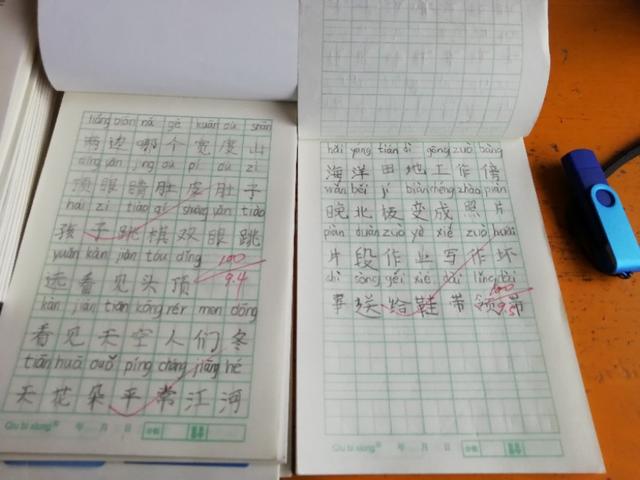 liǎng biān nǎ gè kuān dù shān
两边哪个宽度山
dǐng yǎn jīng dù pí dù zi
顶眼睛肚皮肚子
hái zi tiào qí shuāng yǎn tiào
孩子跳棋双眼跳
yuǎn kàn jiàn tóu dǐng 100
远看见头顶 9.4
kàn jiàn tiān kōng rén men dōng
看见天空人们冬
tiān huā duǒ píng cháng jiāng hé
天花朵平常江河
年 月 日
hǎi yáng tián dì gōng zuò bàng
海洋田地工作傍
wǎn běi jí biàn chéng zhào piàn
晚北极变成照片
piàn duàn zuò yè xiě zuò huài
片段作业写作坏
shì sòng gěi xié dài lǐng dài
事送给鞋带领带 100
9.5
年 月 日